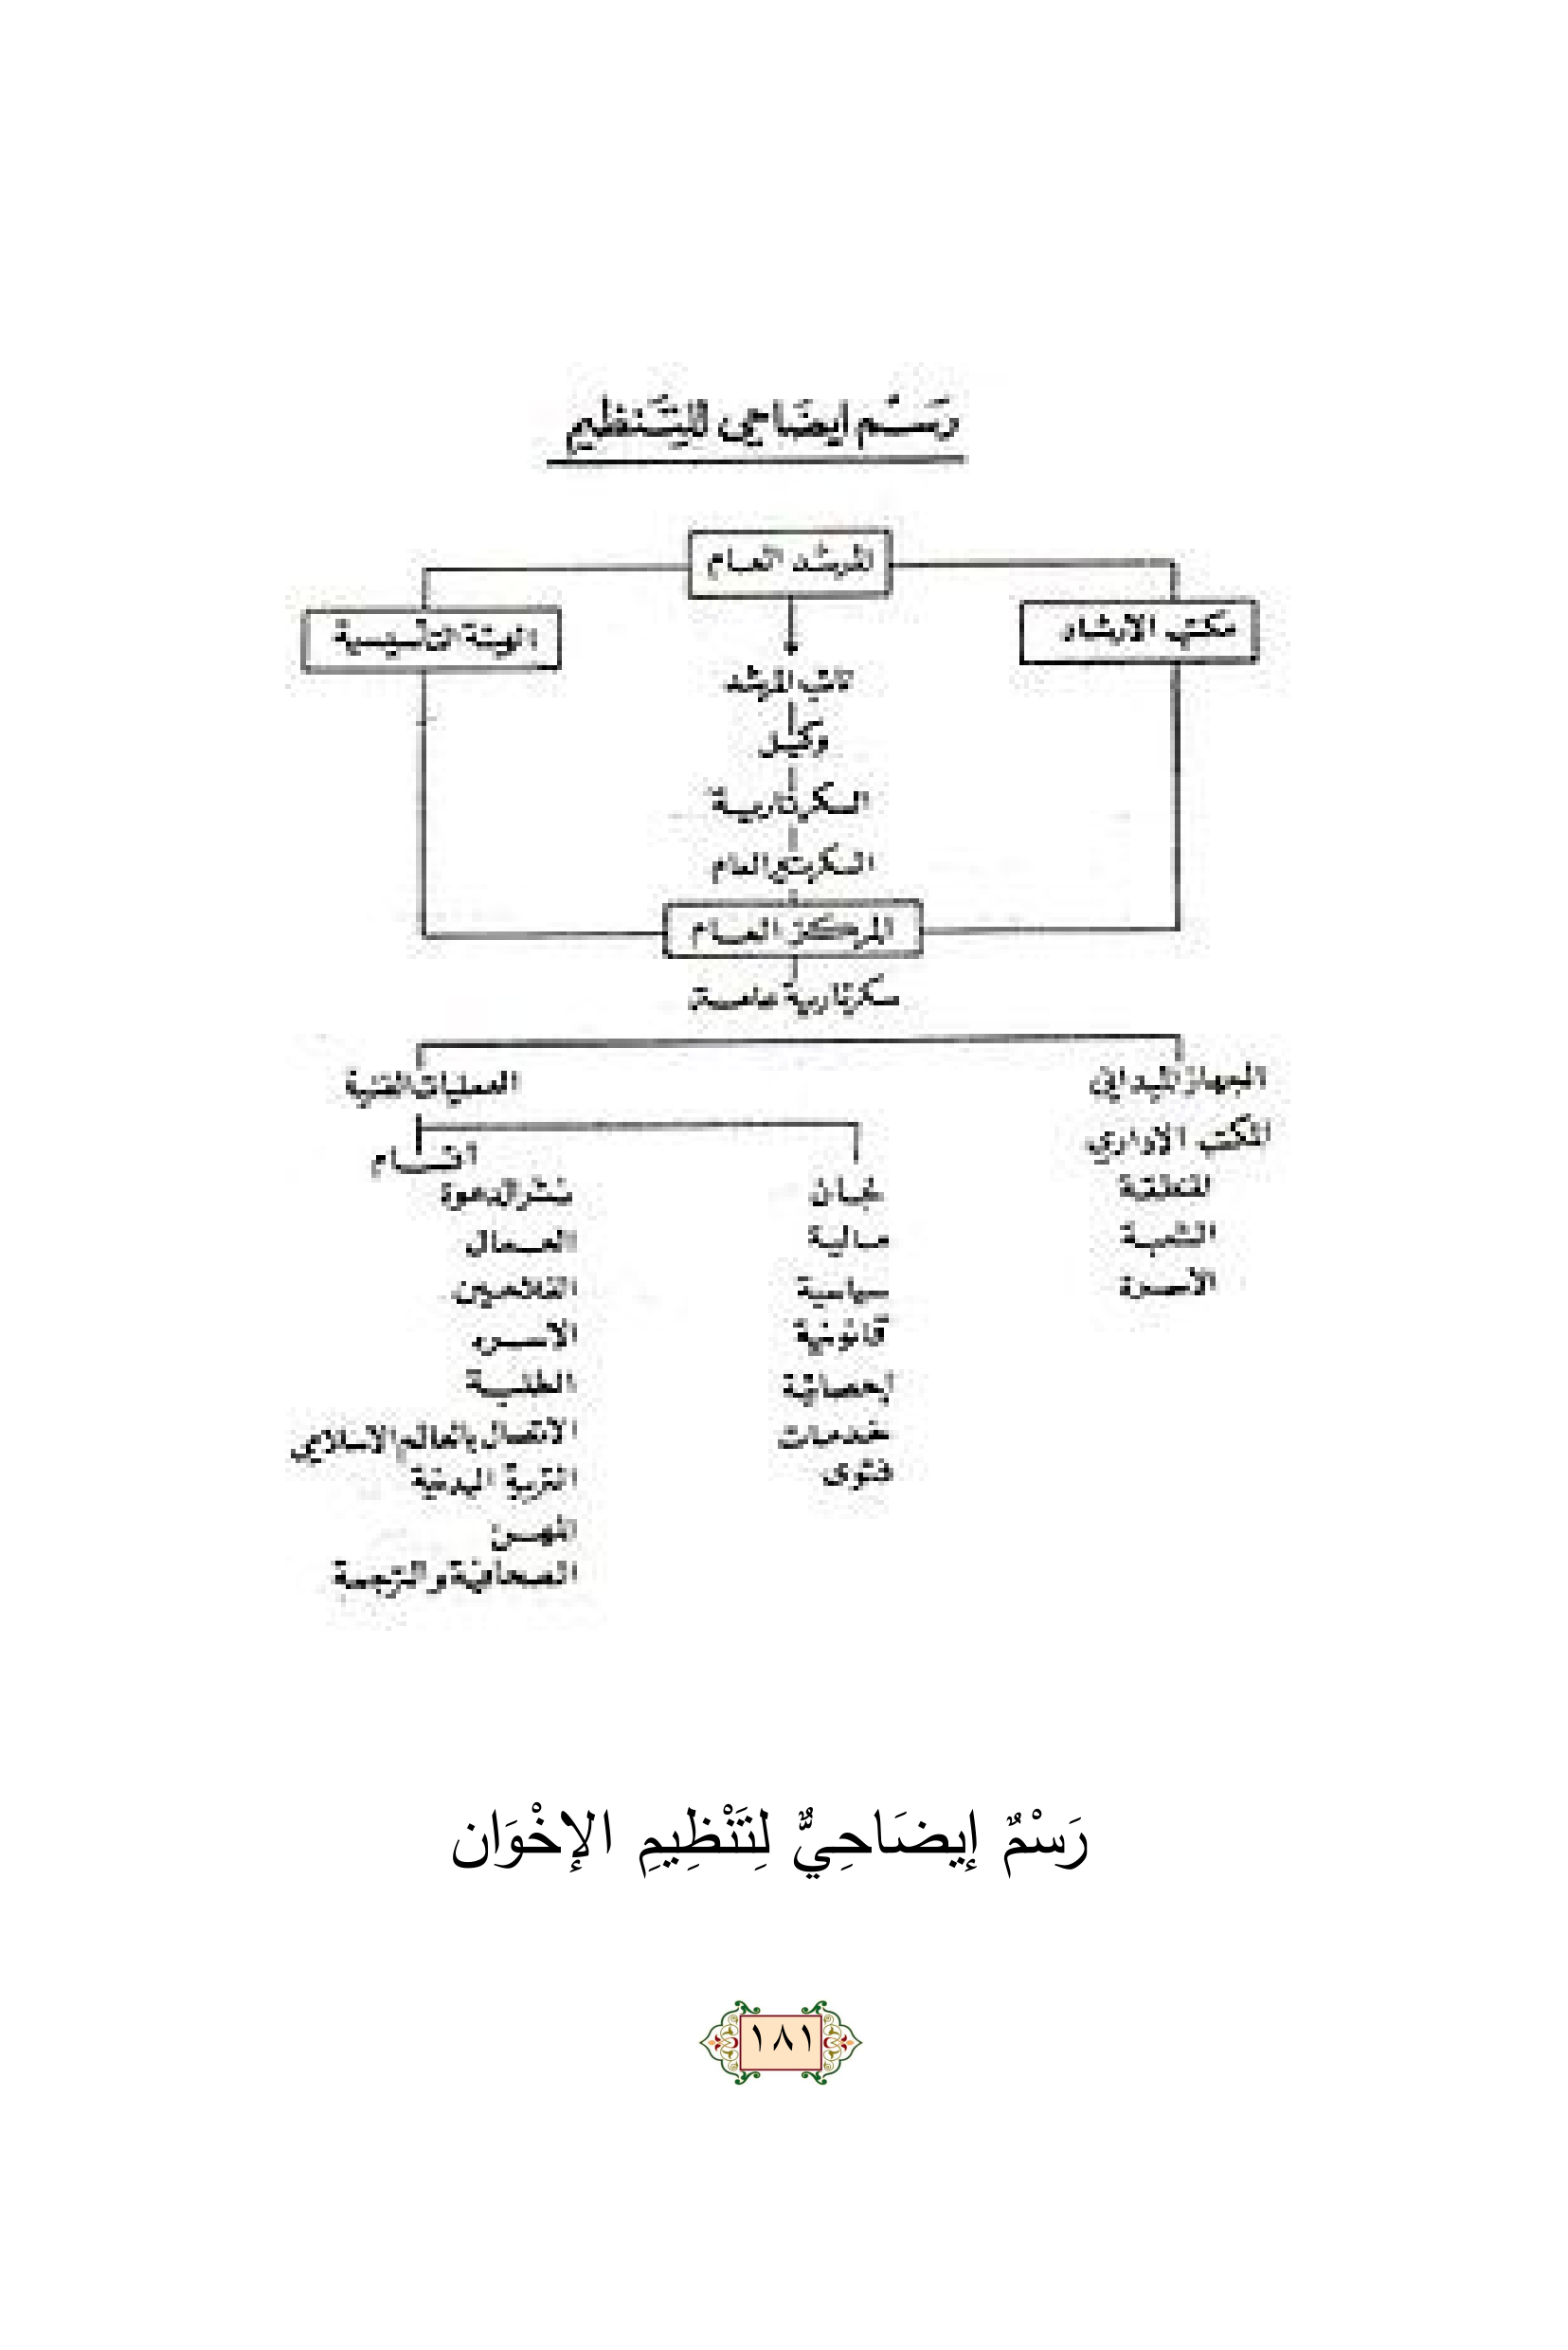 رَسْم إيضَاحي للتَنظيم
المرشد العام
مكتب الارشاد
الهيئة التأسيسية
نائب المرشد
وكيل
السكرتارية
السكرتير العام
المركز العام
سكرتارية عامة
الجهاز الميداني
المكتب الاداري
المنطقة
الشعبة
الأسرة
العمليات الفنية
لجان
مالية
سياسية
قانونية
إحصائية
خدمات
فتوى
اقسام
نشر الدعوة
العمال
الفلاحين
الاسر
الطلبة
الاتصال بالعالم الاسلامي
التربية البدنية
المهن
الصحافة والترجمة
رَسْمٌ إيضَاحِيٌّ لِتَنْظِيمِ الإخْوَان
١٨١